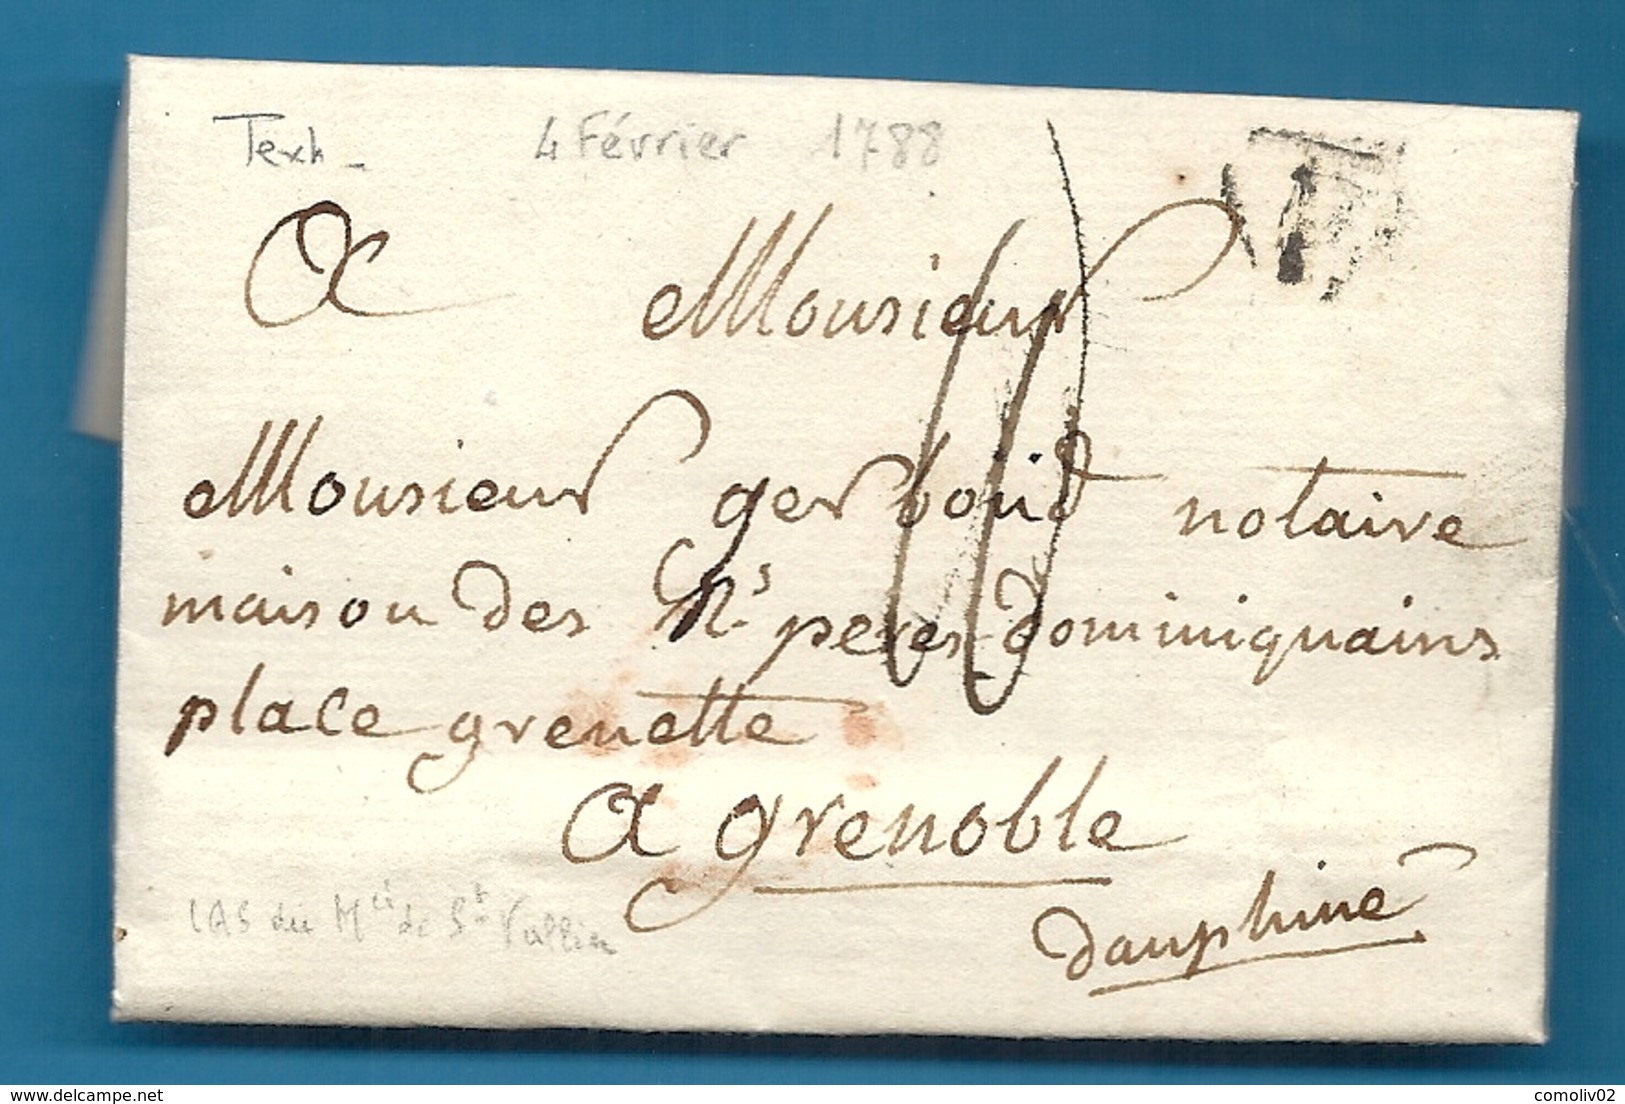 Texte
4 Février 1788
A Monsieur
Monsieur gerboud notaire
maison des R.s peres dominiquains
place grenette
a grenoble
dauphiné
LAS du Mis de St Vallier
www.delcampe.net
comoliv02